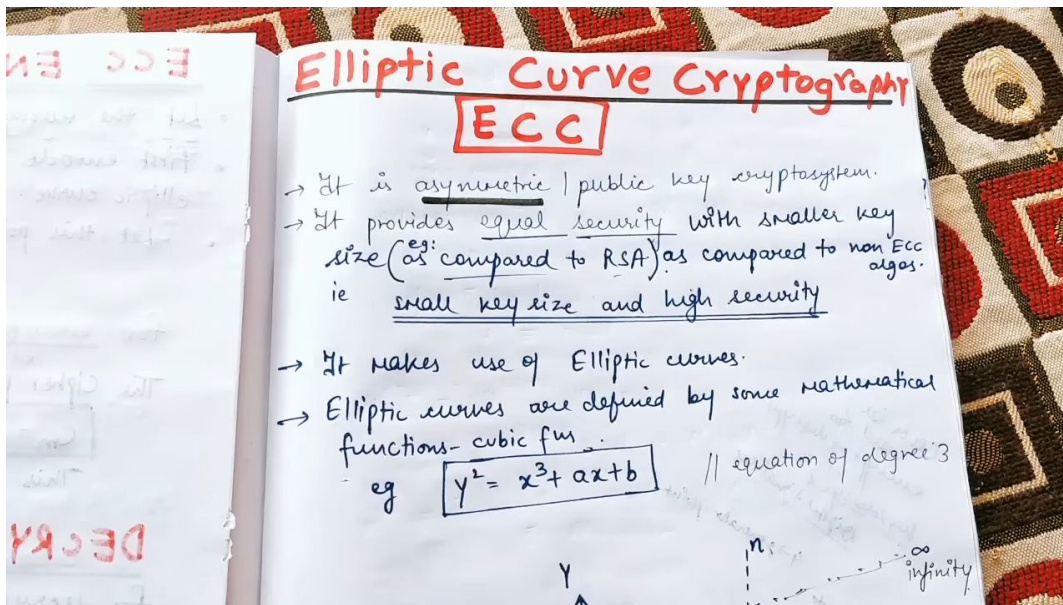 Elliptic Curve Cryptography
ECC
→ It is asymmetric / public key cryptosystem.
→ It provides equal security with smaller key
size (eg: as compared to RSA) as compared to non ECC algos.
ie small key size and high security
→ It makes use of Elliptic curves.
→ Elliptic curves are defined by some mathematical
functions - cubic fns.
eg y² = x³ + ax + b // equation of degree 3
n
∞
infinity
Y
ECC EN
DECRY